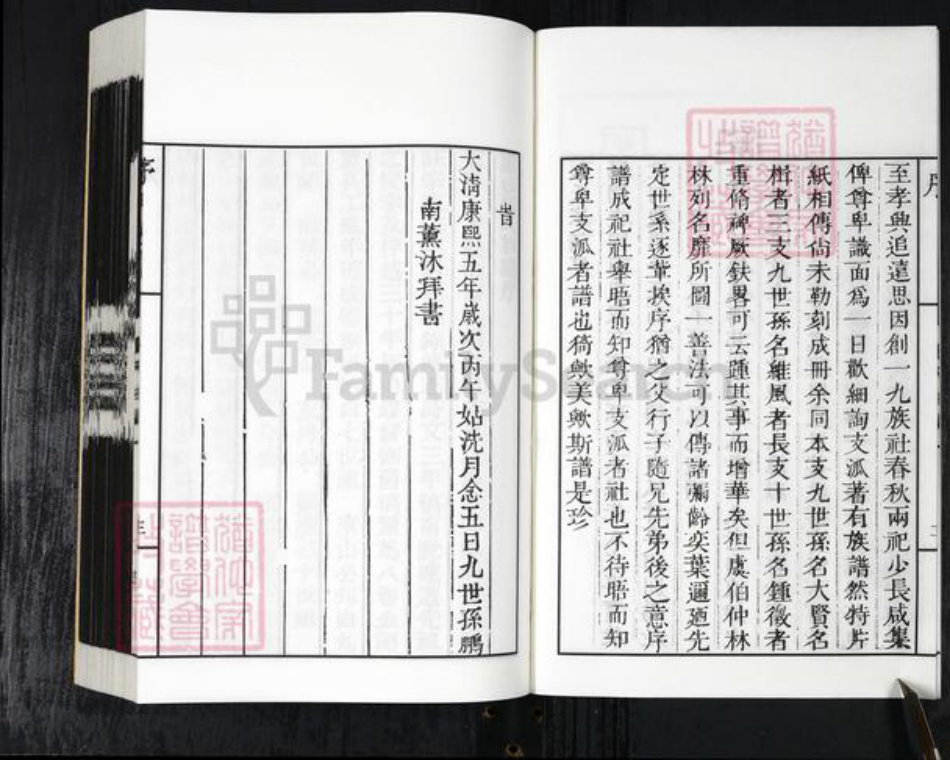 序
至孝興追遠思因創一九族社春秋兩祀少長咸集
俾尊卑識面為一日歡細詢支派著有族譜然特片
紙相傳尚未勒刻成冊余同本支九世孫名大賢名
楫者三支九世孫名維風者長支十世孫名鍾徵者
重脩裨厥鈌畧可云踵其事而增華矣但虞伯仲林
林列名靡所圖一善法可以傳諸彌齡奕葉邇廼先
定世系逐輩挨序猶之父行子隨兄先弟後之意序
譜成祀社舉晤而知尊卑支派者社也不待晤而知
尊卑支派者譜也猗歟美歟斯譜是珍
旹
大清康熙五年歲次丙午姑洗月念五日九世孫鵬
南薰沐拜書
序
FamilySearch